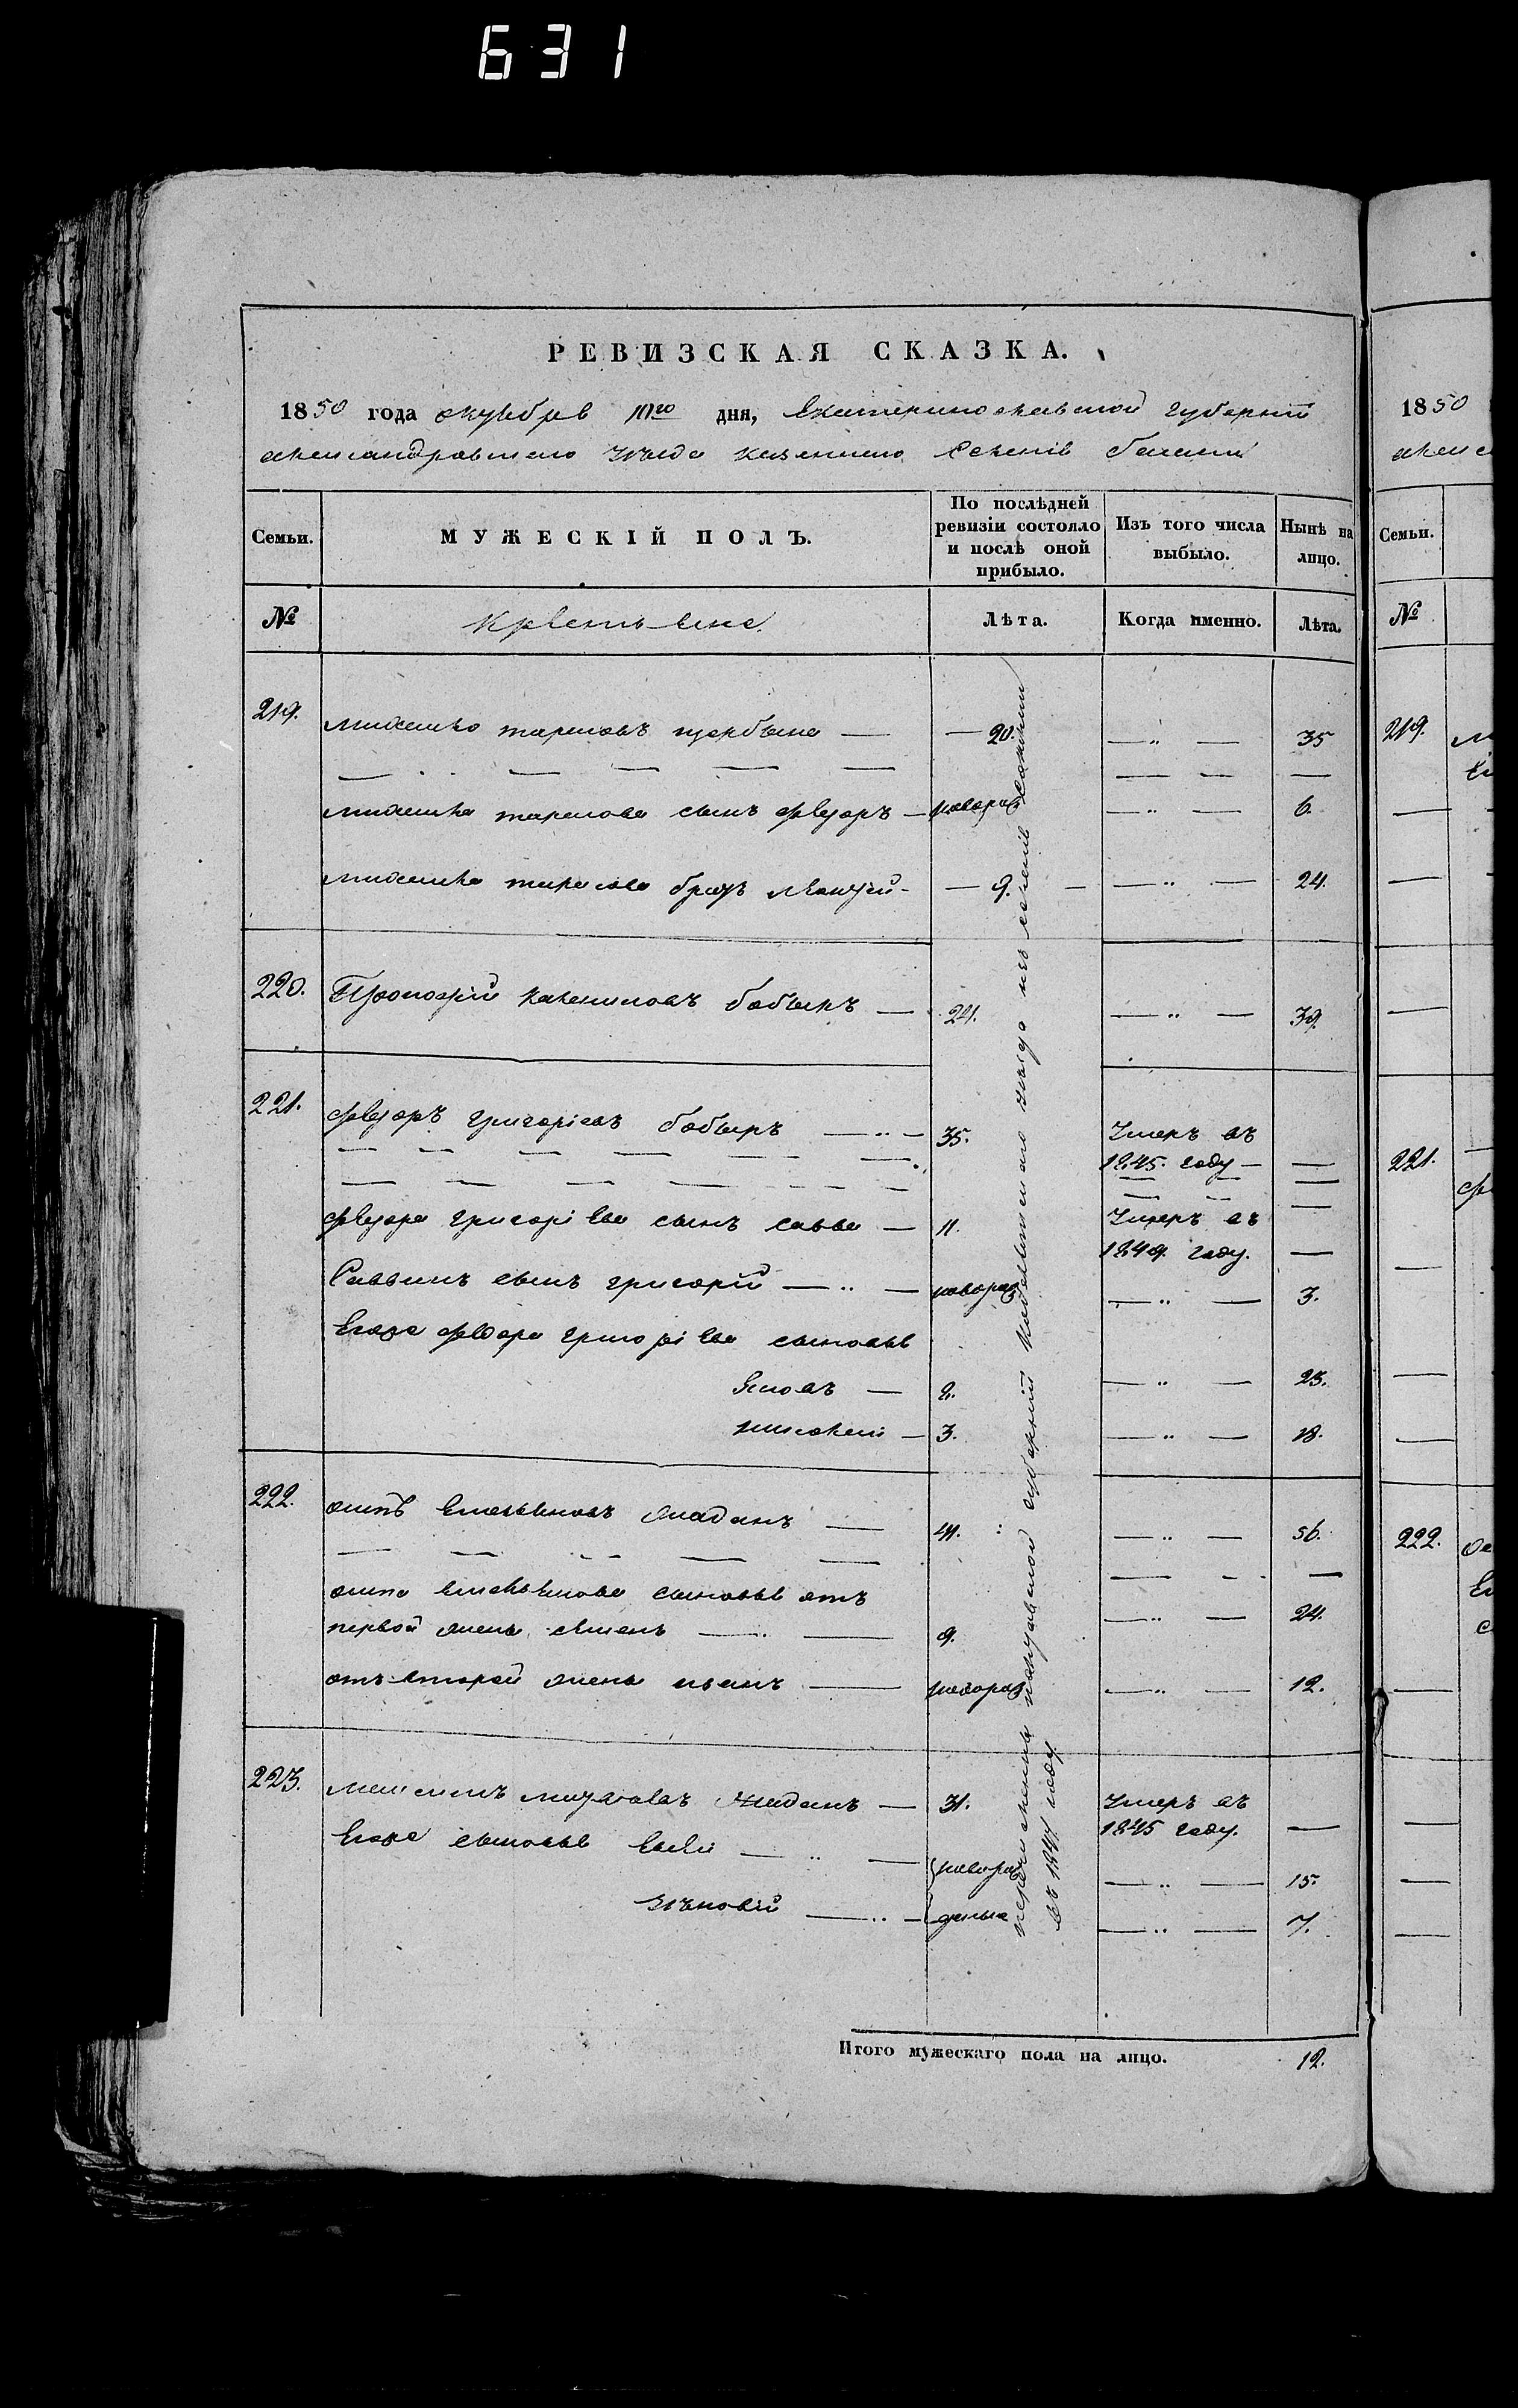 631
РЕВИЗСКАЯ СКАЗКА.
1850 года октября дня, Екатеринославской губерніи
Александровскаго уѣзда казеннаго селенія
Семьи. МУЖЕСКІЙ ПОЛЪ. По послѣдней ревизіи состояло и послѣ оной прибыло. Изъ того числа выбыло. Нынѣ на лицо.
№ Крестьяне. Лѣта. Когда именно. Лѣта.
219. михайло тарасовъ щербина — 20. — " — 35
михайла тарасова сынъ федоръ — новорож — " — 6.
михайла тарасова братъ — 9. — — " — 24.
220. Прокофій бобыръ — 24. — " — 39.
221. федоръ григоріевъ бобыръ — " — 35. Умеръ въ
1845. году —
федора григоріева сынъ савва — 11. Умеръ въ
1849. году. —
Саввинъ сынъ григорій — " — новорож — " — 3.
Егоже федора григоріева сыновья
Яковъ — 8. — " — 23.
— 3. — " — 18.
222. осипъ емельяновъ жаданъ — 41. — " — 56.
осипа емельянова сыновья отъ
первой жены семенъ — " — 9. — " — 24.
отъ второй жены иванъ — новорож — " — 12.
223. максимъ жаданъ — 31. Умеръ въ
1845 году. —
Егоже сыновья — " — новорож — " — 15.
зѣновій — " — дены — " — 7.
полтавской губерніи уѣзда изъ селенія
въ 1847 году.
Итого мужескаго пола на лицо. 12.
1850
Семьи.
№
219.
221.
222.